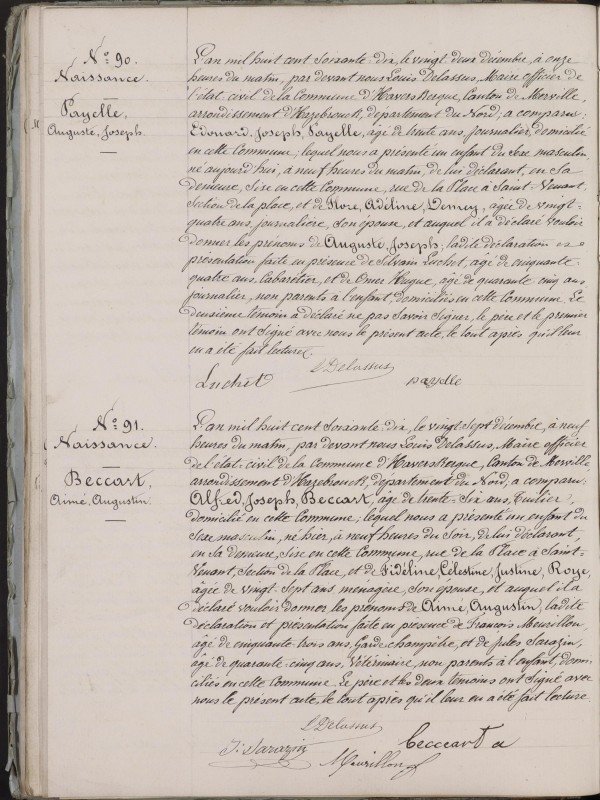 N° 90.
Naissance.
Payelle,
Auguste, Joseph.
L'an mil huit cent soixante-dix, le vingt deux décembre, à onze
heures du matin, par devant nous Louis Delassus, Maire officier de
l'état-civil de la Commune d'Haverskerque, Canton de Merville,
arrondissement d'Hazebrouck, département du Nord, a comparu:
Edouard, Joseph, Payelle, âgé de trente ans, journalier, domicilié
en cette Commune; lequel nous a présenté un enfant du sexe masculin,
né aujourd'hui, à neuf heures du matin, de lui déclarant, en sa
demeure, sise en cette Commune, rue de la Place à Saint-Venant,
Section de la place, et de Flore, Adéline, Demey, âgée de vingt-
quatre ans, journalière, son épouse, et auquel il a déclaré vouloir
donner les prénoms de Auguste, Joseph; ladite déclaration et
présentation faite en présence de Silvain Luchet, âgé de cinquante-
quatre ans, Cabaretier, et de Omer Hugue, âgé de quarante-cinq ans
journalier, non parents à l'enfant, domiciliés en cette Commune. Le
deuxième témoin a déclaré ne pas savoir signer, le père et le premier
témoin ont signé avec nous le présent acte, le tout après qu'il leur
en a été fait lecture.
L Delassus
Luchet payelle
N° 91.
Naissance.
Beccart,
Aimé, Augustin.
L'an mil huit cent soixante-dix, le vingt sept décembre, à neuf
heures du matin, par devant nous Louis Delassus, Maire officier
de l'état-civil de la Commune d'Haverskerque, Canton de Merville,
arrondissement d'Hazebrouck, département du Nord, a comparu:
Alfred, Joseph, Beccart, âgé de trente-six ans, tuilier,
domicilié en cette Commune; lequel nous a présenté un enfant du
sexe masculin, né hier, à neuf heures du soir, de lui déclarant,
en sa demeure, sise en cette Commune, rue de la Place à Saint-
Venant, Section de la Place, et de Fidéline, Célestine, Justine, Roye,
âgée de vingt-sept ans, ménagère, son épouse, et auquel il a
déclaré vouloir donner les prénoms de Aimé, Augustin, ladite
déclaration et présentation faite en présence de François Meurillon,
âgé de cinquante-trois ans, Garde-champêtre, et de Jules Sarazin,
âgé de quarante-cinq ans, Vétérinaire, non parents à l'enfant, domi-
ciliés en cette Commune. Le père et les deux témoins ont signé avec
nous le présent acte, le tout après qu'il leur en a été fait lecture.
L Delassus
J. Sarazin Meurillon Beccart a